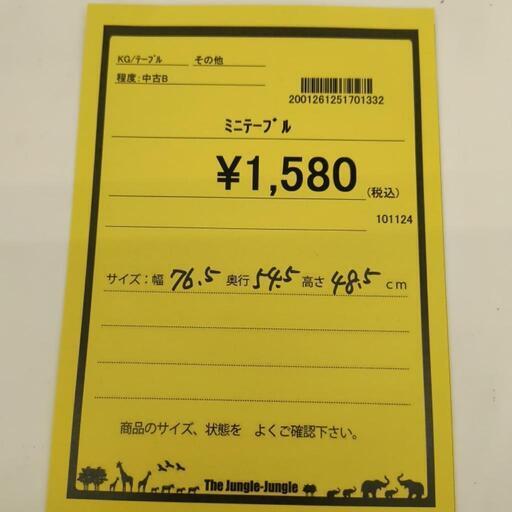 KG/ﾃｰﾌﾞﾙ その他
程度:中古B
2001261251701332
ﾐﾆﾃｰﾌﾞﾙ
¥1,580(税込)
101124
サイズ:幅 76.5 奥行 54.5 高さ 48.5 cm
商品のサイズ、状態を よくご確認下さい。
The Jungle-Jungle